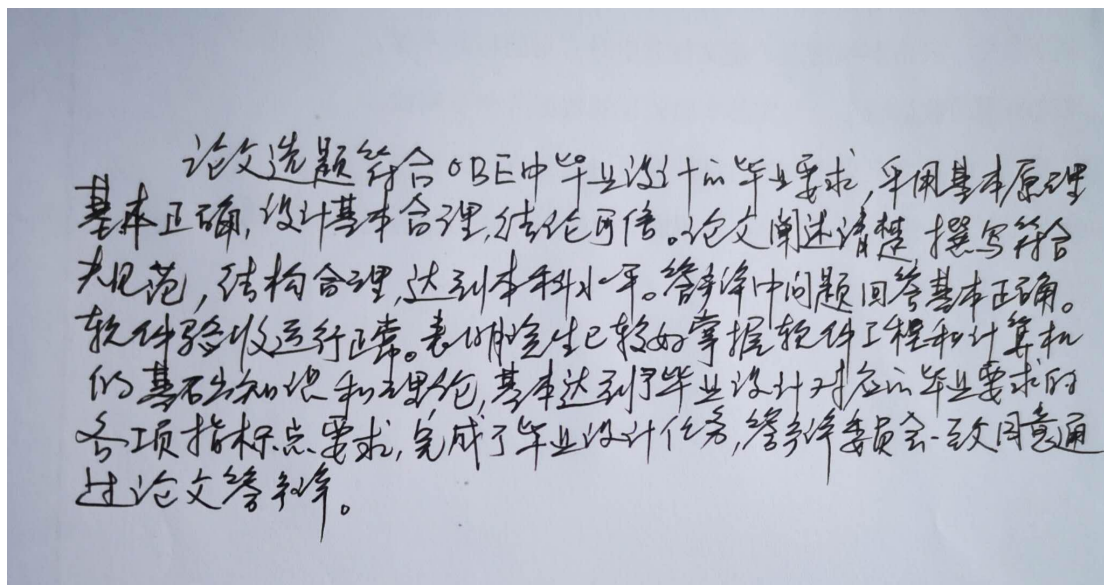 论文选题符合OBE中毕业设计的毕业要求,采用基本原理
基本正确,设计基本合理,结论可信。论文阐述清楚,撰写符合
规范,结构合理,达到本科水平。答辩中问题回答基本正确。
软件验收运行正常。表明该生已较好掌握软件工程和计算机
的基础知识和理论,基本达到了毕业设计对应的毕业要求的
各项指标点要求,完成了毕业设计任务,答辩委员会一致同意通
过论文答辩。